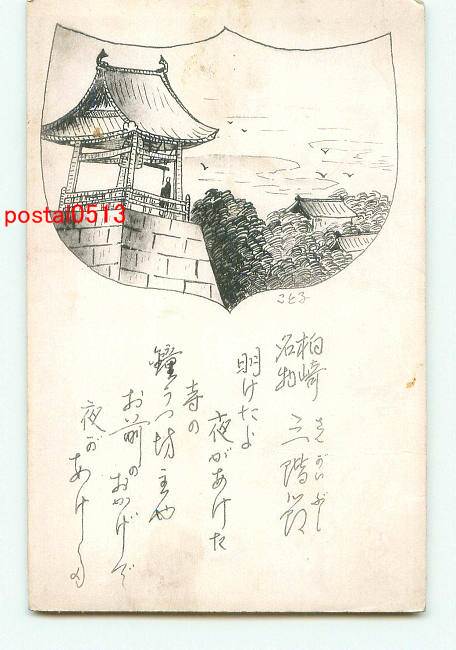 ことる
柏崎
名物 三階節
さんがいぶし
明けたよ
夜があけた
寺の
鐘つく坊主や
お前のおかげで
夜があけ
postal0513